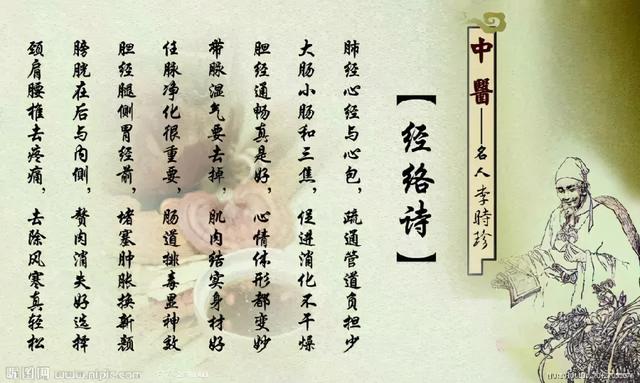 中醫——名人李時珍
【经络诗】
肺经心经与心包，疏通管道负担少
大肠小肠和三焦，促进消化不干燥
胆经通畅真是好，心情体形都变妙
带脉湿气要去掉，肌肉结实身材好
任脉净化很重要，肠道排毒显神效
胆经腿侧胃经前，堵塞肿胀换新颜
膀胱在后与内侧，赘肉消失好选择
颈肩腰椎去疼痛，去除风寒真轻松
昵图网 www.nipic.com